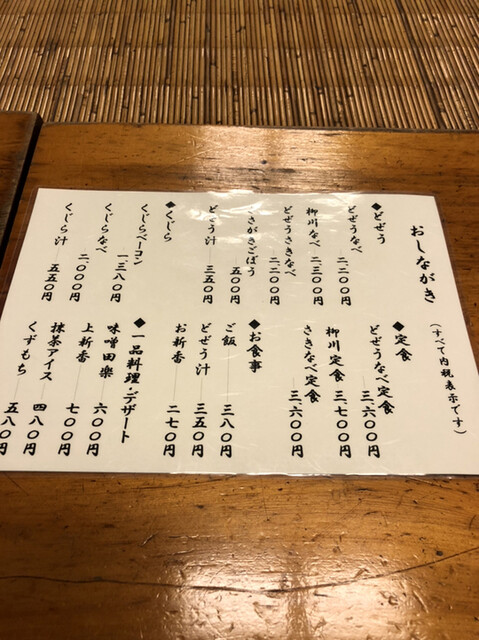 おしながき
(すべて内税表示です)
◆どぜう
どぜうなべ 二、二〇〇円
柳川なべ 二、三〇〇円
どぜうさきなべ 二、二〇〇円
ささがきごぼう 五〇〇円
どぜう汁 三五〇円
◆くじら
くじらベーコン 一、三八〇円
くじらなべ 二、〇〇〇円
くじら汁 五五〇円
◆定食
どぜうなべ定食 三、六〇〇円
柳川定食 三、七〇〇円
さきなべ定食 三、六〇〇円
◆お食事
ご飯 三八〇円
どぜう汁 三五〇円
お新香 二七〇円
◆一品料理・デザート
味噌田楽 六〇〇円
上新香 七〇〇円
抹茶アイス 四八〇円
くずもち 五八〇円